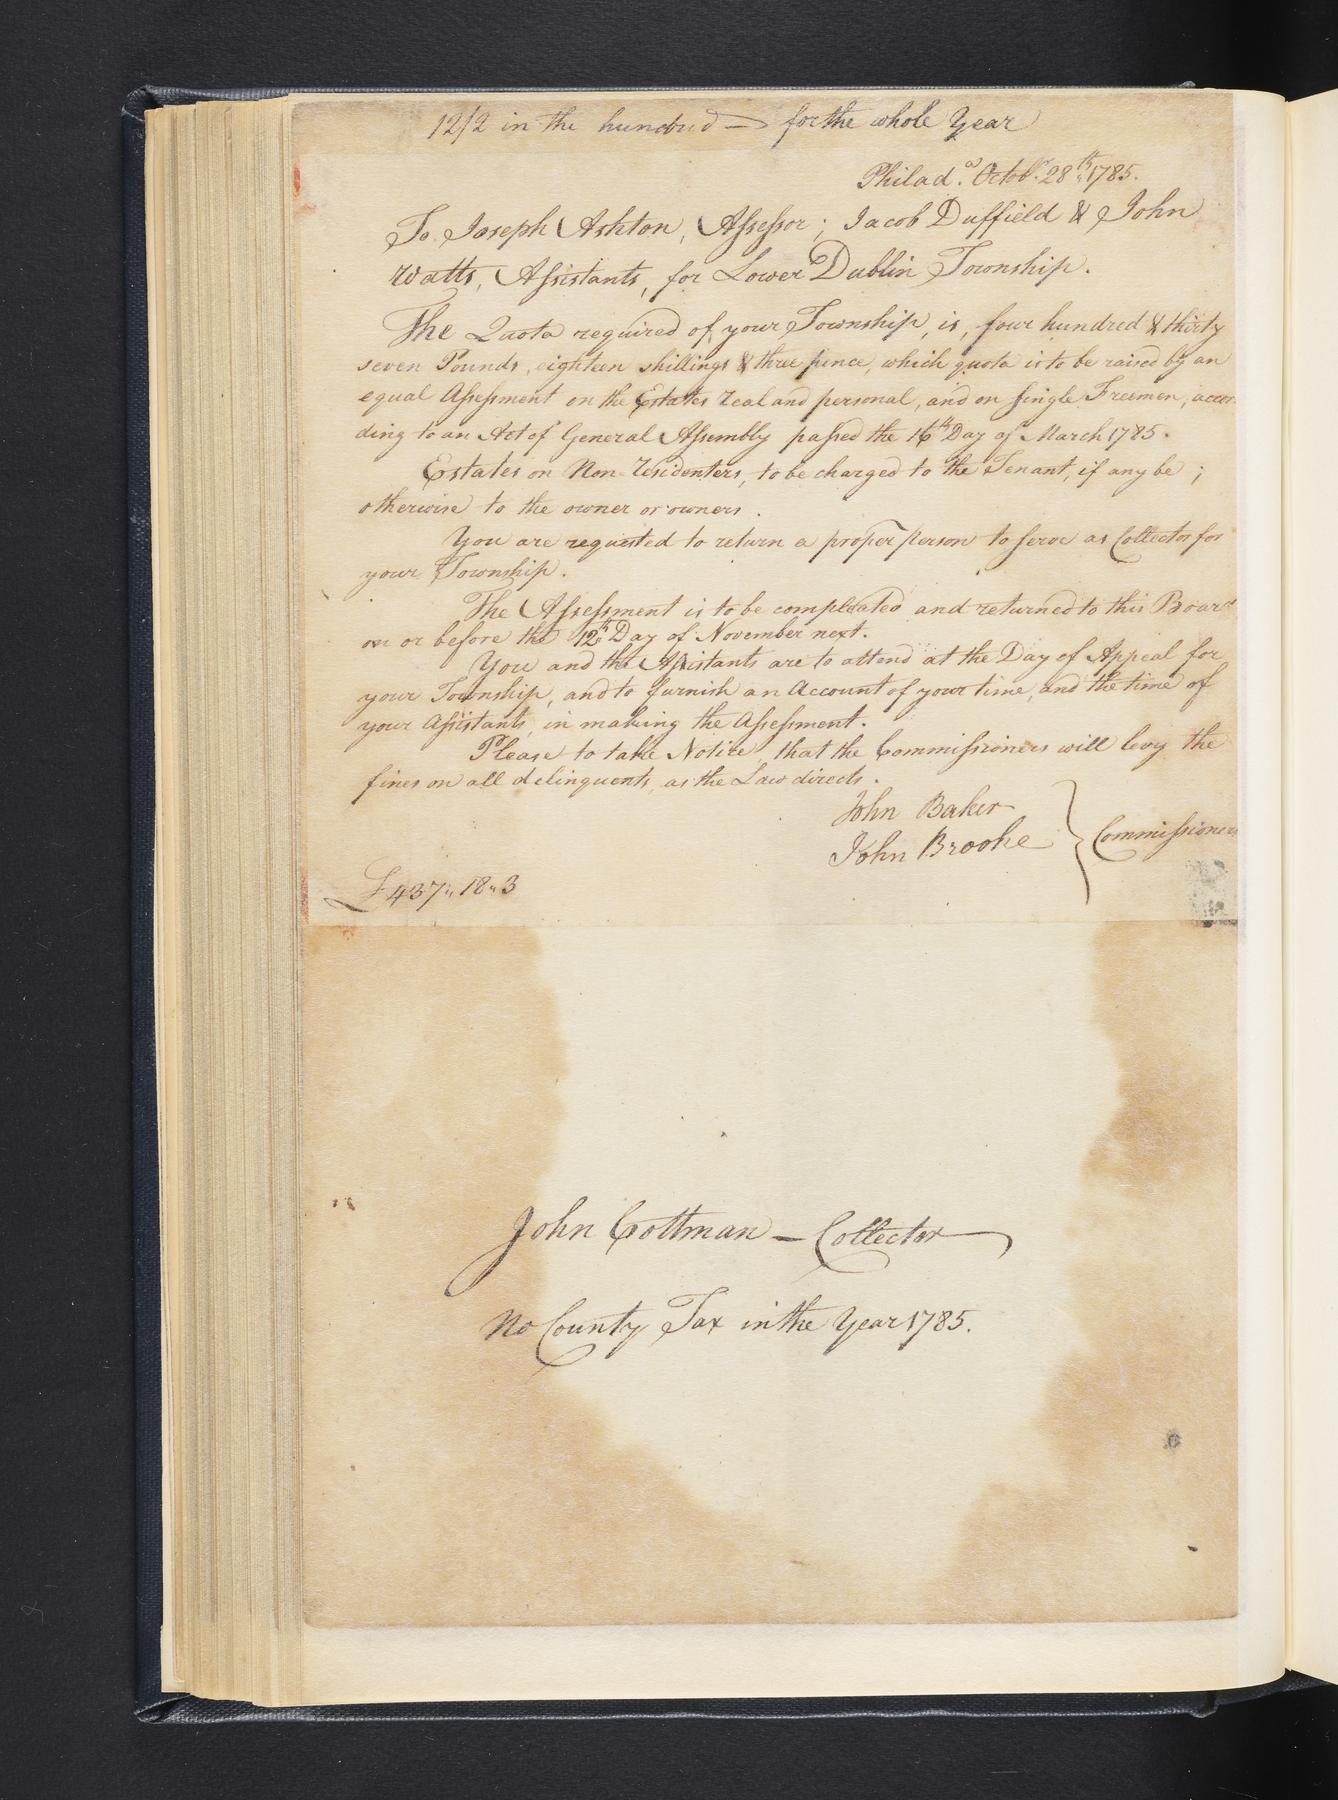 12/2 in the hundred — for the whole Year
Philad.a Octob.r 28th 1785.
To Joseph Ashton, Assessor; Jacob Duffield & John
Watts, Assistants, for Lower Dublin Township.
The Quota required of your Township, is, four hundred & thirty
seven Pounds, eighteen shillings & three pence, which quota is to be raised by an
equal Assessment on the Estates real and personal, and on single Freemen, accor
ding to an Act of General Assembly passed the 16th Day of March 1785.
Estates on Non-Residenters, to be charged to the Tenant, if any be;
otherwise to the owner or owners.
You are requested to return a proper person to serve as Collector for
your Township.
The Assessment is to be compleated and returned to this Board
on or before the 12th Day of November next.
You and the Assistants are to attend at the Day of Appeal for
your Township, and to furnish an Account of your time, and the time of
your Assistants, in making the Assessment.
Please to take Notice, that the Commissioners will levy the
fines on all delinquents, as the Law directs.
John Baker
John Brooke } Commissioners
£437.. 18.. 3
John Cottman — Collector
No County Tax in the Year 1785.